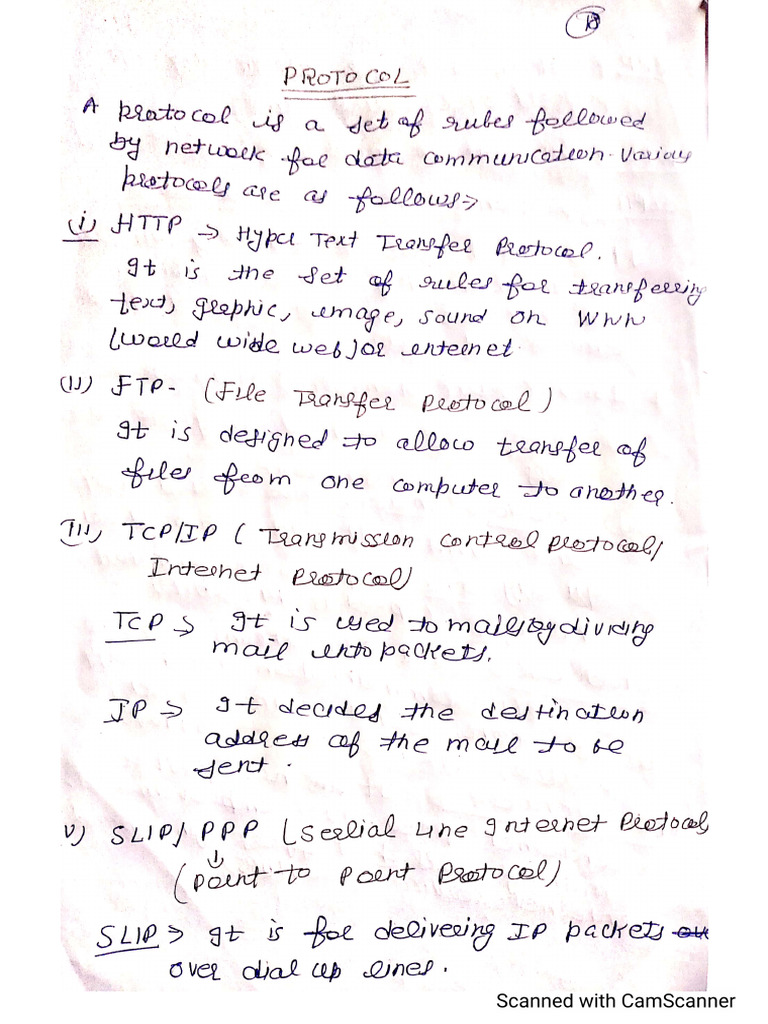 18
PROTOCOL
A protocol is a set of rules followed
by network for data communication. Various
protocols are as follows⇒
(i) HTTP → Hyper Text Transfer Protocol.
It is the set of rules for transferring
text, graphic, image, sound on WWW
(world wide web) or internet.
(ii) FTP- (File Transfer Protocol)
It is designed to allow transfer of
files from one computer to another.
(iii) TCP/IP ( Transmission control protocol/
Internet Protocol)
TCP → It is used to mails by dividing
mail into packets.
IP → It decides the destination
address of the mail to be
sent.
v) SLIP/ PPP (Serlial Line Internet Protocol,
(point to point Protocol)
SLIP → It is for delivering IP packets
over dial up lines.
Scanned with CamScanner